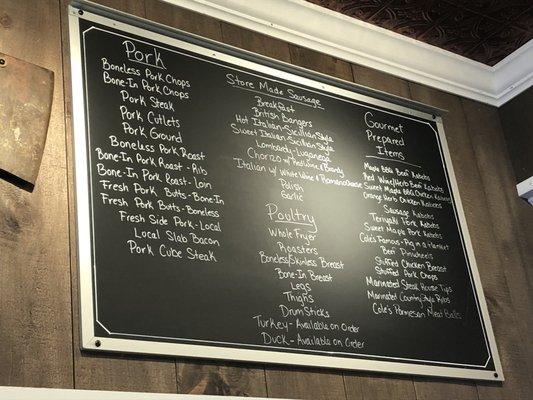 Pork
Boneless Pork Chops
Bone-In Pork Chops
Pork Steak
Pork Cutlets
Pork Ground
Boneless Pork Roast
Bone-In Pork Roast - Rib
Bone-In Pork Roast - Loin
Fresh Pork Butts - Bone-In
Fresh Pork Butts - Boneless
Fresh Side Pork - Local
Local Slab Bacon
Pork Cube Steak
Store Made Sausage
Breakfast
British Bangers
Hot Italian - Sicilian Style
Sweet Italian - Sicilian Style
Lombardy - Luganega
Chorizo w/ Red Wine & Brandy
Italian w/ White Wine & Romano Cheese
Polish
Garlic
Poultry
Whole Fryer
Roasters
Boneless/Skinless Breast
Bone-In Breast
Legs
Thighs
Drum Sticks
Turkey - Available on Order
Duck - Available on Order
Gourmet
Prepared
Items
Maple BBQ Beef Kabobs
Red Wine/Herb Beef Kabobs
Sweet Maple BBQ Chicken Kabobs
Orange Herb Chicken Kabobs
Sausage Kabobs
Teriyaki Pork Kabobs
Sweet Maple Pork Kabobs
Cole's Famous - Pig in a Blanket
Beef Pinwheels
Stuffed Chicken Breast
Stuffed Pork Chops
Marinated Steak House Tips
Marinated Country Style Ribs
Cole's Parmesan Meat Balls